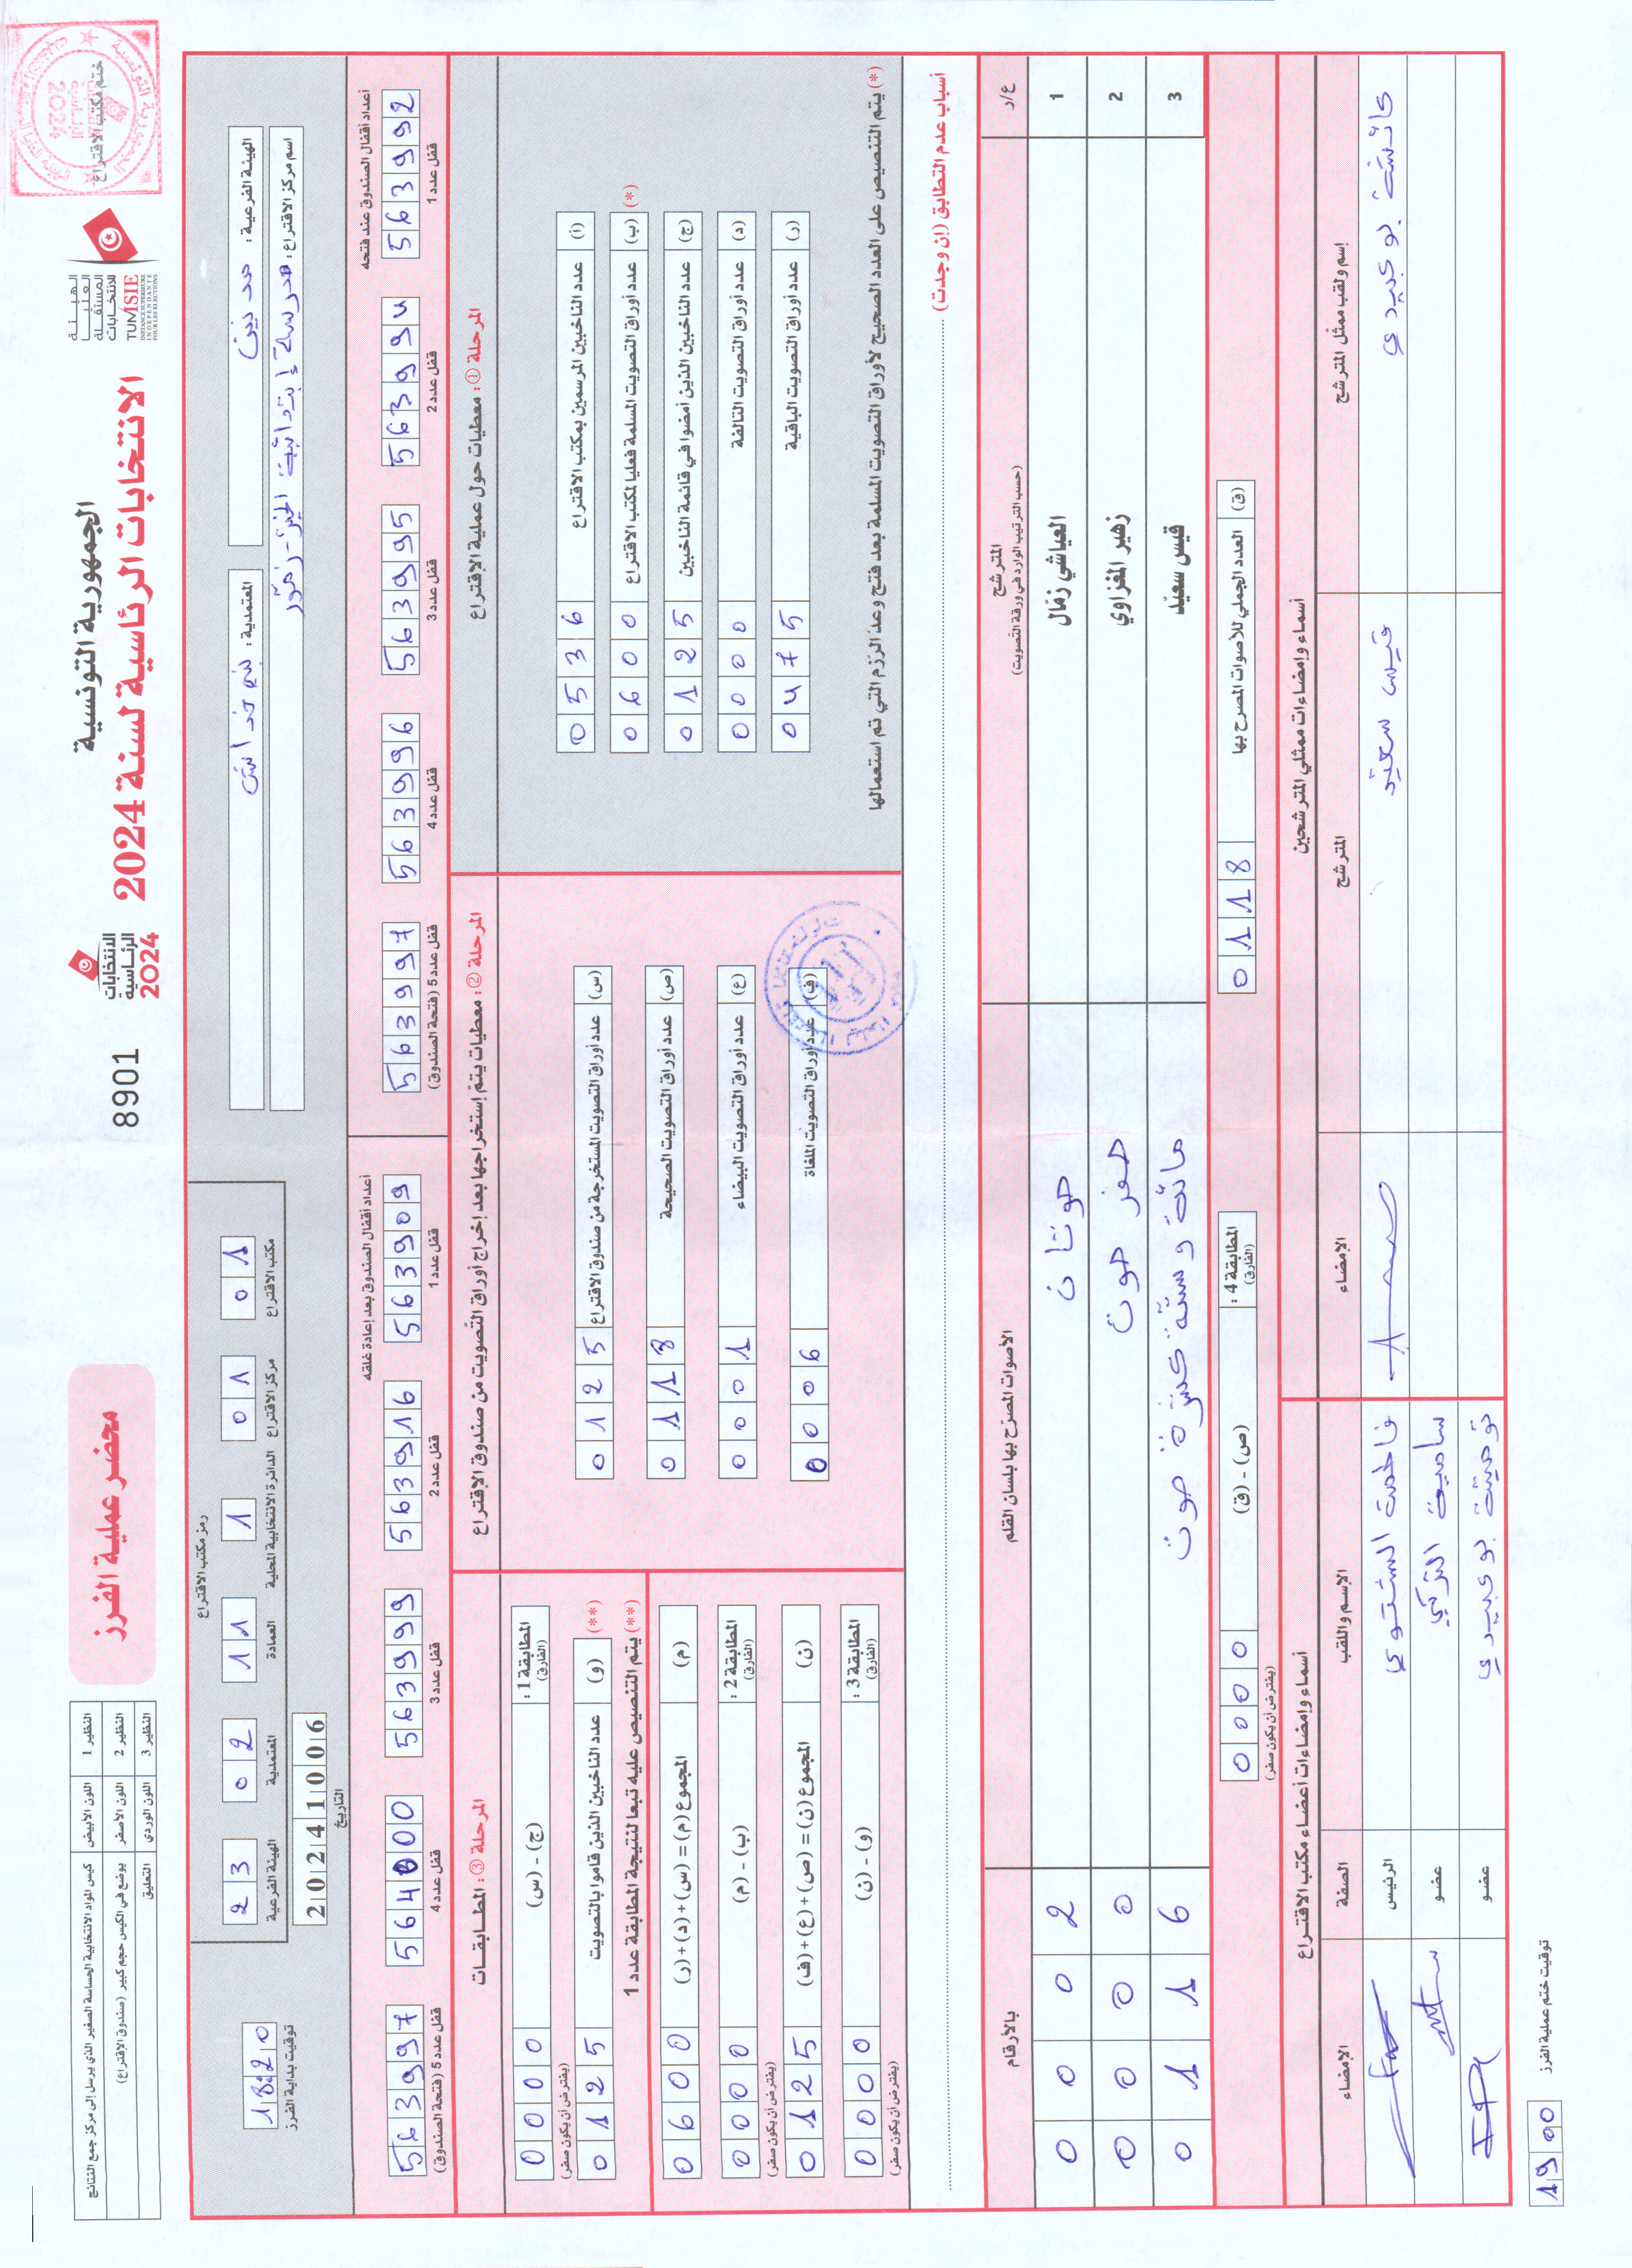 الجمهورية التونسية
الانتخابات الرئاسية لسنة 2024
الهيئة العليا المستقلة للانتخابات
TUNISIE
INSTANCE SUPERIEURE INDEPENDANTE POUR LES ELECTIONS
ختم مكتب الاقتراع
الانتخابات الرئاسية 2024
8901
محضر عملية الفرز
النظير 1 اللون الأبيض كيس المواد الانتخابية الحساسة الصغير الذي يرسل إلى مركز جمع النتائج
النظير 2 اللون الأصفر يوضع في الكيس حجم كبير (صندوق الاقتراع)
النظير 3 اللون الوردي التعليق
الهيئة الفرعية: مدنين
المعتمدية: بني خداش
اسم مركز الاقتراع: مدرسة إبتدائية
رمز مكتب الاقتراع
الهيئة الفرعية 23
المعتمدية 02
العمادة 11
الدائرة الانتخابية المحلية 1
مركز الاقتراع 01
مكتب الاقتراع 01
التاريخ 20241006
توقيت بداية الفرز 18:20
أعداد أقفال الصندوق عند فتحه
قفل عدد 1 563992
قفل عدد 2 563994
قفل عدد 3 563995
قفل عدد 4 563996
قفل عدد 5 (فتحة الصندوق) 563997
أعداد أقفال الصندوق بعد إعادة غلقه
قفل عدد 1 563909
قفل عدد 2 563916
قفل عدد 3 563999
قفل عدد 4 564000
قفل عدد 5 (فتحة الصندوق) 563997
المرحلة ①: معطيات حول عملية الاقتراع
(أ) عدد الناخبين المرسمين بمكتب الاقتراع 0536
(*) (ب) عدد أوراق التصويت المسلمة فعليا لمكتب الاقتراع 0600
(ج) عدد الناخبين الذين أمضوا في قائمة الناخبين 0125
(د) عدد أوراق التصويت التالفة 0000
(ر) عدد أوراق التصويت الباقية 0475
(*) يتم التنصيص على العدد الصحيح لأوراق التصويت المسلمة بعد فتح وعد الرزم التي تم استعمالها
المرحلة ②: معطيات يتم إستخراجها بعد إخراج أوراق التصويت من صندوق الاقتراع
(س) عدد أوراق التصويت المستخرجة من صندوق الاقتراع 0125
(ص) عدد أوراق التصويت الصحيحة 0118
(ع) عدد أوراق التصويت البيضاء 0001
(ف) عدد أوراق التصويت الملغاة 0006
المرحلة ③: المطابقات
المطابقة 1: (الفارق) (ج) - (س) 0000
(يفترض أن يكون صفر)
(**) (و) عدد الناخبين الذين قاموا بالتصويت 0125
(**) يتم التنصيص عليه تبعا لنتيجة المطابقة عدد 1
(م) المجموع (م) = (س) + (د) + (ر) 0600
المطابقة 2: (الفارق) (ب) - (م) 0000
(يفترض أن يكون صفر)
(ن) المجموع (ن) = (ص) + (ع) + (ف) 0125
المطابقة 3: (الفارق) (و) - (ن) 0000
(يفترض أن يكون صفر)
أسباب عدم التطابق (إن وجدت)
ع/ر المترشح (حسب الترتيب الوارد في ورقة التصويت) الأصوات المصرّح بها بلسان القلم بالأرقام
1 العياشي زمّال صوتان 0002
2 زهير المغزاوي صفر صوت 0000
3 قيس سعيّد مائة وستة عشرة صوت 0116
(ق) العدد الجملي للأصوات المصرح بها 0118
المطابقة 4: (الفارق) (ص) - (ق) 0000
(يفترض أن يكون صفر)
أسماء وإمضاءات ممثلي المترشحين
إسم ولقب ممثل المترشح المترشح الإمضاء
عائشة بوعبيدي قيس سعيد
أسماء وإمضاءات أعضاء مكتب الاقتراع
الإسم واللقب الصفة الإمضاء
فاطمة الشتوي الرئيس
سامية التركي عضو
بوعبيدي عضو
توقيت ختم عملية الفرز 19 00